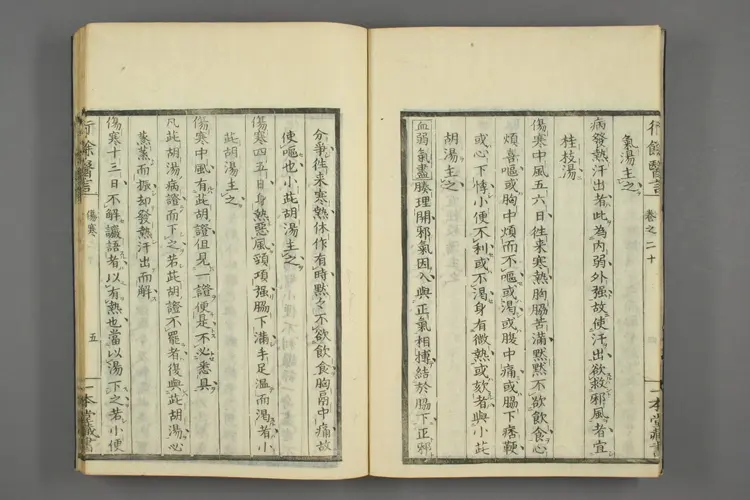 行餘醫言 卷之二十 一本堂藏書
氣湯主之
病發熱汗出者此為内弱外强故使汗出欲救邪風者宜
桂枝湯
傷寒中風五六日徃来寒熱胸脇苦滿黙黙不欲飲食心
煩喜嘔或胸中煩而不嘔或渴或腹中痛或脇下痞鞕
或心下悸小便不利或不渴身有微熱或欬者與小茈
胡湯主之
血弱氣盡腠理開邪氣因入與正氣相搏結於脇下正邪
分爭徃来寒熱休作有時黙々不欲飲食胸膈中痛故
使嘔也小茈胡湯主之
傷寒四五日身熱惡風頸項强脇下滿手足温而渴者小
茈胡湯主之
傷寒中風有茈胡證但見一證便是不必悉具
凡茈胡湯病證而下之若茈胡證不罷者復與茈胡湯必
蒸蒸而振却發熱汗出而解
傷寒十三日不解讝語者以有熱也當以湯下之若小便
行餘醫言 傷寒 五 一本堂藏書